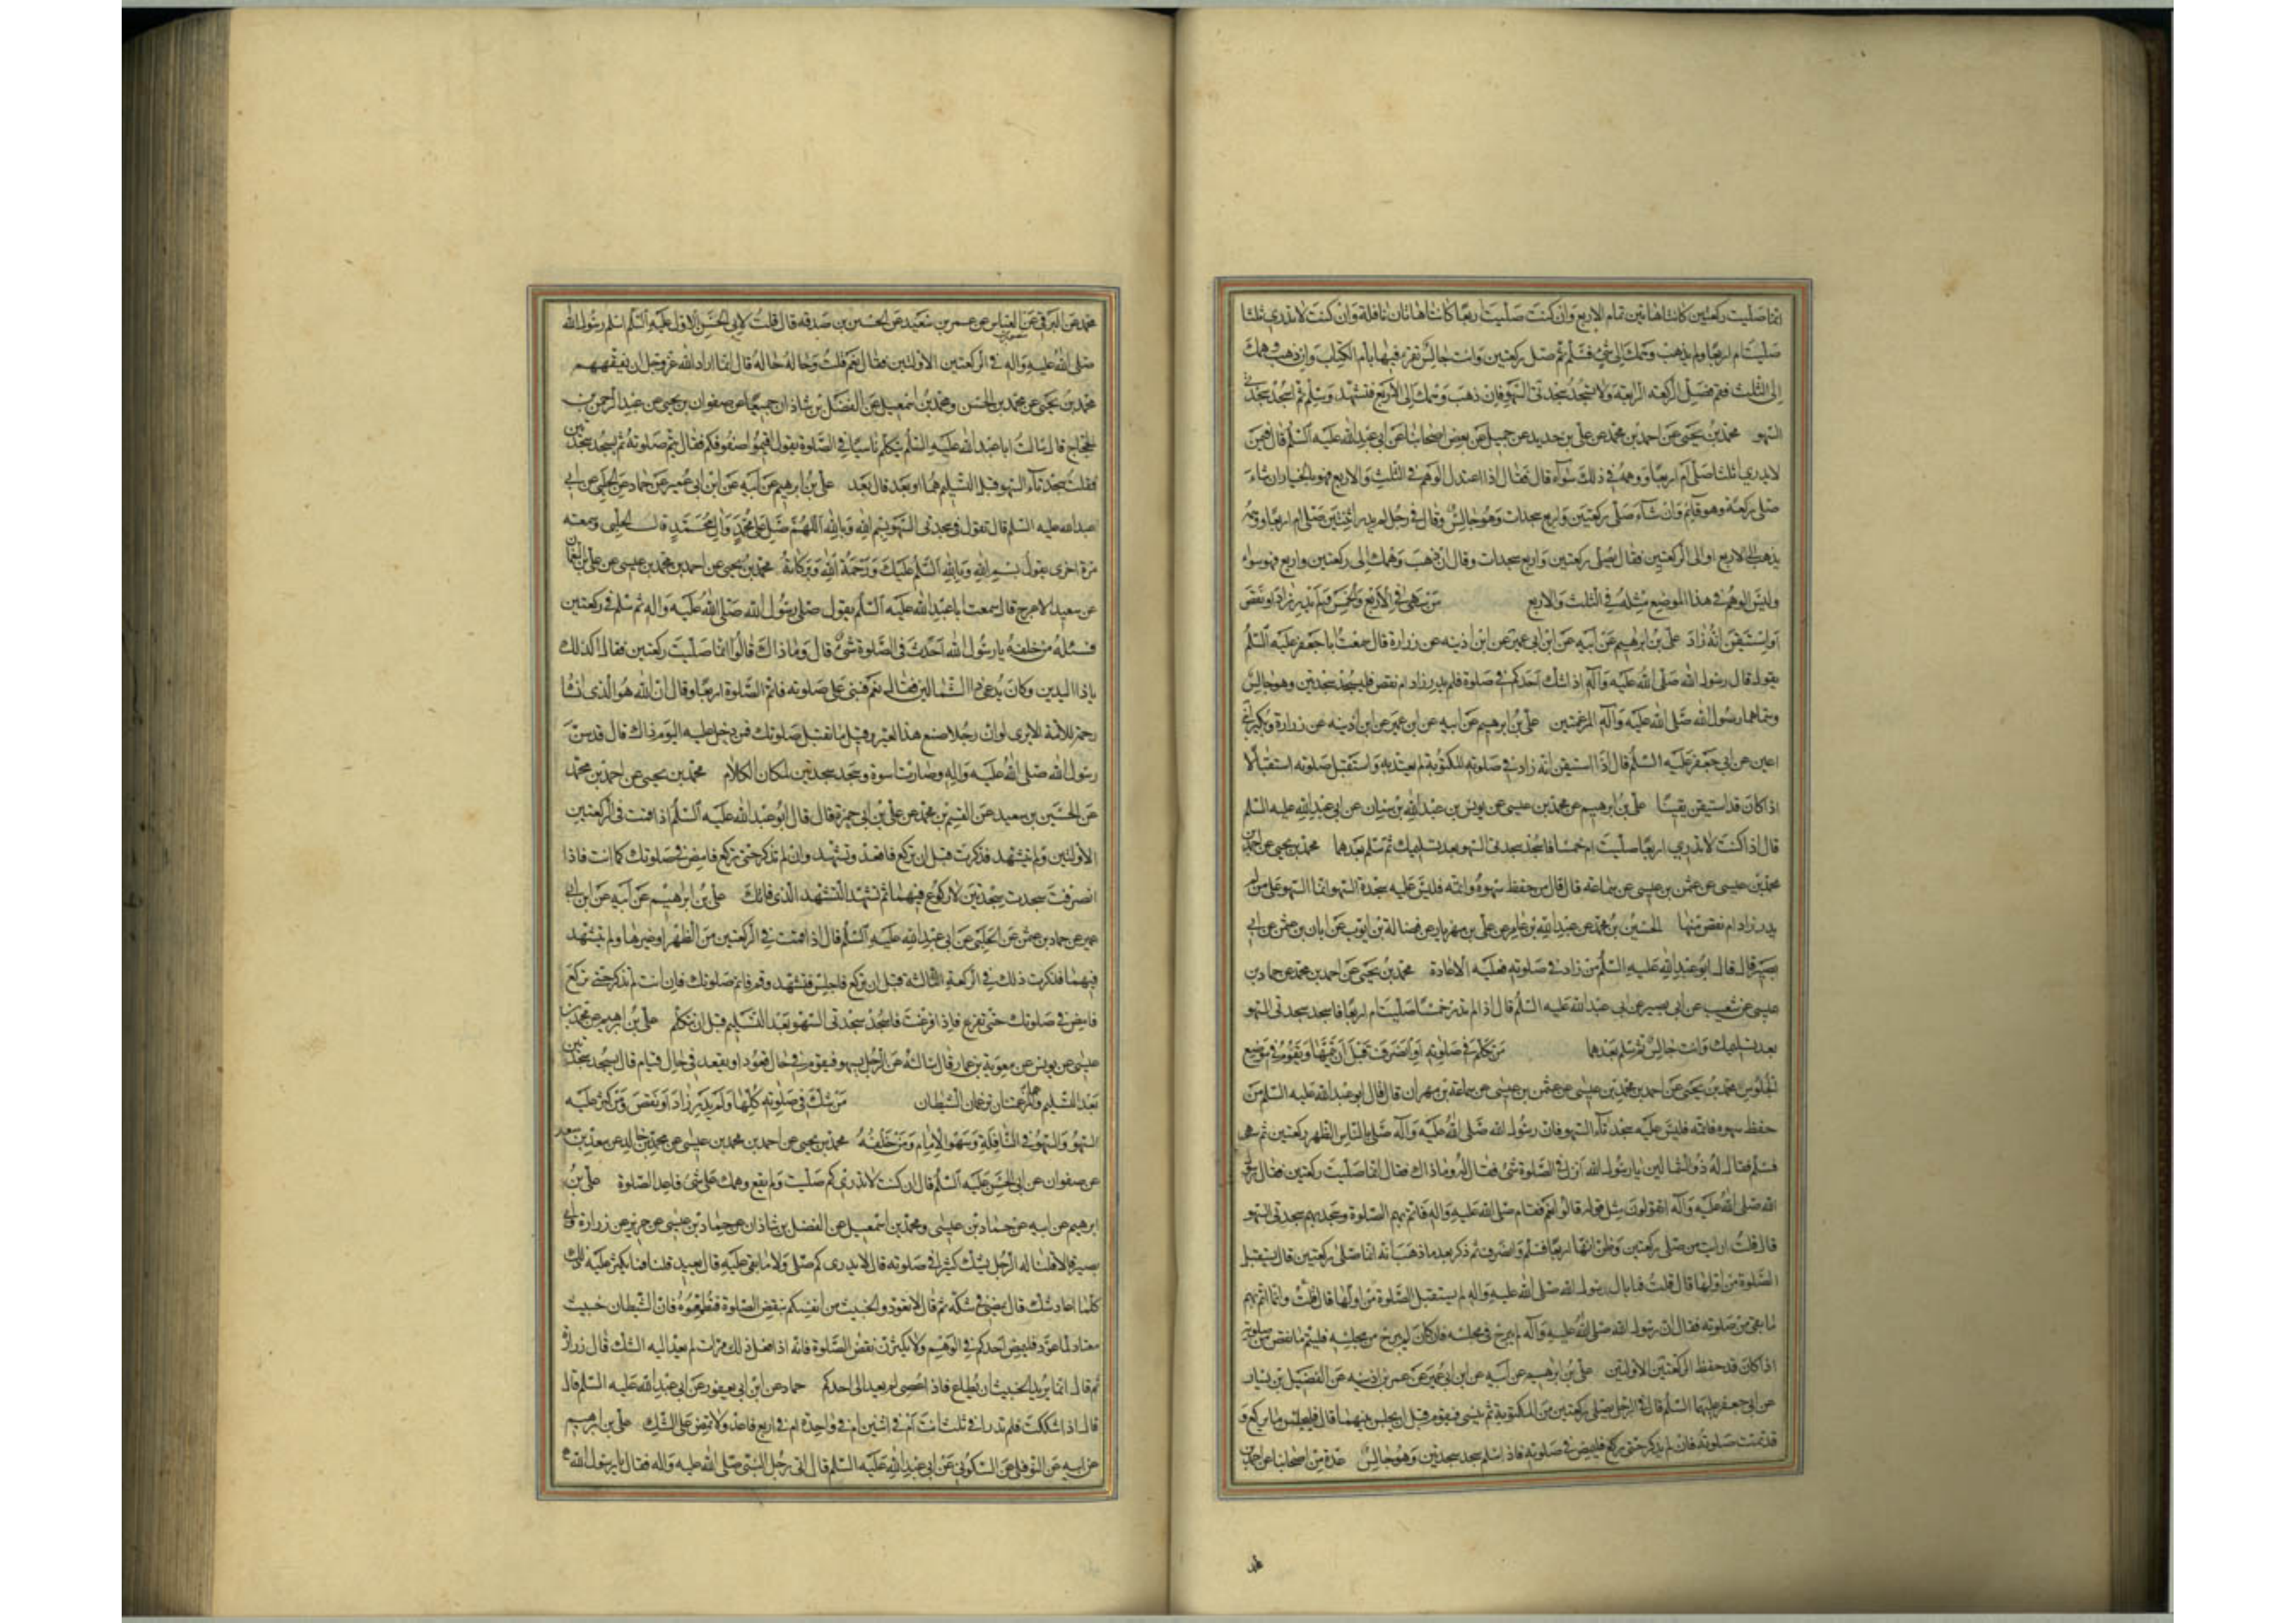 انما صليت ركعتين كانتا هاتين تمام الاربع وان كنت صليت اربعا كانتا هاتان نافلة وان كنت لا تدري ثلثا
صليت ام اربعا ولم يذهب وهمك الى شيء فسلم ثم صل ركعتين وانت جالس تقرء فيهما بام الكتاب وان ذهب وهمك
الى الثلث فقم فصل الركعة الرابعة ولا تسجد سجدتى السهو فان ذهب وهمك الى الاربع فتشهد وسلم ثم اسجد سجدتي
السهو محمد بن يحيى عن احمد بن محمد عن علي بن حديد عن جميل عن بعض اصحابنا عن ابي عبد الله عليه السلم قال فيمن
لا يدري اثلثا صلى ام اربعا ووهمه في ذلك سواء قال فقال اذا اعتدل الوهم في الثلث والاربع فهو بالخيار ان شاء
صلى ركعة وهو قائم وان شاء صلى ركعتين واربع سجدات وهو جالس وقال في رجل لم يدر اثنتين صلى ام اربعا ووهمه
يذهب الى الاربع او الى الركعتين فقال يصلى ركعتين واربع سجدات وقال ان ذهب وهمك الى ركعتين واربع فهو سواء
وليس الوهم في هذا الموضع مثله في الثلث والاربع من سهى في الاربع والخمس ولم يدر زاد او نقص
او استيقن انه زاد علي بن ابرهيم عن ابيه عن ابن ابي عمير عن ابن اذينه عن زرارة قال سمعت ابا جعفر عليه السلم
يقول قال رسول الله صلى الله عليه وآله اذا شك احدكم في صلوة فلم يدر زاد ام نقص فليسجد سجدتين وهو جالس
وسماهما رسول الله صلى الله عليه وآله المرغمتين علي بن ابرهيم عن ابيه عن ابن عمير عن ابن اذينه عن زرارة وبكير ابني
اعين عن ابي جعفر عليه السلم قال اذا استيقن انه زاد في صلوته المكتوبة لم يعتد به واستقبل صلوته استقبالا
اذا كان قد استيقن يقينا علي بن ابرهيم عن محمد بن عيسى عن يونس بن عبد الله بن سنان عن ابي عبد الله عليه السلم
قال اذا كنت لا تدري اربعا صليت ام خمسا فاسجد سجدتى السهو بعد تسليمك ثم سلم بعدهما محمد بن يحيى عن احمد بن
محمد بن عيسى عن عثمن بن عيسى عن سماعة قال قال من حفظ سهوه واتمه فليس عليه سجدة السهو انما السهو على من لم
يدر زاد ام نقص منها الحسين بن محمد عن عبد الله بن عامر عن علي بن مهزيار عن فضالة بن ايوب عن ابان بن عثمن عن ابي
بصير قال قال ابو عبد الله عليه السلم من زاد في صلوته فعليه الاعادة محمد بن يحيى عن احمد بن محمد عن حماد بن
عيسى عن شعيب عن ابي بصير عن ابي عبد الله عليه السلم قال اذا لم تدر خمسا صليت ام اربعا فاسجد سجدتى السهو
بعد تسليمك وانت جالس ثم سلم بعدهما من تكلم في صلوته او انصرف قبل ان يتمها او يقوم في موضع
الجلوس محمد بن يحيى عن احمد بن محمد بن عيسى عن عثمن بن عيسى عن سماعة بن مهران قال قال ابو عبد الله عليه السلم من
حفظ سهوه فاتمه فليس عليه سجدتا السهو فان رسول الله صلى الله عليه وآله صلى بالناس الظهر ركعتين ثم سهى
فسلم فقال له ذو الشمالين يا رسول الله انزل في الصلوة شيء فقال له وما ذاك فقال انما صليت ركعتين فقال رسول
الله صلى الله عليه وآله اتقولون مثل قوله قالوا نعم فقام صلى الله عليه وآله فاتم بهم الصلوة وسجد بهم سجدتى السهو
قال قلت ارايت من صلى ركعتين وظن انها اربعا فسلم وانصرف ثم ذكر بعد ما ذهب انه انما صلى ركعتين قال يستقبل
الصلوة من اولها قال قلت فما بال رسول الله صلى الله عليه واله لم يستقبل الصلوة من اولها قال قلت وانما اتم بهم
ما بقى من صلوته فقال ان رسول الله صلى الله عليه وآله لم يبرح في مجلسه فان كان لم يبرح من مجلسه فليتم ما نقص من صلوته
اذا كان قد حفظ الركعتين الاولتين علي بن ابرهيم عن ابيه عن ابن ابي عمير عن عمر بن اذينه عن الفضيل بن يسار
عن ابي جعفر عليهما السلم قال في الرجل يصلى ركعتين من المكتوبة ثم ينسى فيقوم قبل ان يجلس بينهما قال فليجلس ما لم يركع و
قد تمت صلوته فان لم يذكر حتى ركع فليمض في صلوته فاذا سلم سجد سجدتين وهو جالس عدة من اصحابنا عن احمد بن
محمد عن البرقي عن العباس عن عمر بن سعيد عن الحسن بن صدقه قال قلت لابي الحسن الاول عليه السلم اسلم رسول الله
صلى الله عليه وآله في الركعتين الاولتين فقال نعم قلت وحاله حاله قال انما اراد الله عز وجل ان يفقههم
محمد بن يحيى عن محمد بن الحسن ومحمد بن اسمعيل عن الفضل بن شاذان جميعا عن صفوان بن يحيى عن عبد الرحمن بن
الحجاج قال سالت ابا عبد الله عليه السلم يتكلم ناسيا في الصلوة يقول اقيموا صفوفكم فقال يتم صلوته ثم يسجد سجدتين
فقلت سجدتا السهو قبل التسليم هما او بعد قال بعد علي بن ابرهيم عن ابيه عن ابن ابي عمير عن حماد عن الحلبي عن ابي
عبد الله عليه السلم قال تقول في سجدتى السهو بسم الله وبالله اللهم صل على محمد وال محمد قال الحلبي وسمعته
مرة اخرى يقول بسم الله وبالله السلم عليك ورحمة الله وبركاته محمد بن يحيى عن احمد بن محمد بن عيسى عن علي بن النعمان
عن سعيد الاعرج قال سمعت ابا عبد الله عليه السلم يقول صلى رسول الله صلى الله عليه واله ثم سلم في ركعتين
فسئله من خلفه يا رسول الله احدث في الصلوة شيء قال وما ذاك قالوا انما صليت ركعتين فقال اكذلك
ياذا اليدين وكان يدعى ذا الشمالين فقال نعم فبنى على صلوته فاتم الصلوة اربعا وقال ان الله هو الذى انساه
رحمة للامة الا ترى لو ان رجلا صنع هذا لعير وقيل ما تقبل صلوتك فمن دخل عليه اليوم ذاك قال قد سن
رسول الله صلى الله عليه واله وصارت اسوة وسجد سجدتين لمكان الكلام محمد بن يحيى عن احمد بن محمد
عن الحسين بن سعيد عن القسم بن محمد عن علي بن ابي حمزة قال قال ابو عبد الله عليه السلم اذا قمت في الركعتين
الاولتين ولم تتشهد فذكرت قبل ان تركع فاقعد وتشهد وان لم تذكر حتى تركع فامض في صلوتك كما انت فاذا
انصرفت سجدت سجدتين لا ركوع فيهما ثم تشهد التشهد الذى فاتك علي بن ابرهيم عن ابيه عن ابن ابي
عمير عن حماد بن عثمن عن الحلبي عن ابي عبد الله عليه السلم قال اذا قمت في الركعتين من الظهر او غيرها ولم تتشهد
فيهما فذكرت ذلك في الركعة الثالثة قبل ان تركع فاجلس فتشهد وقم فاتم صلوتك فان انت لم تذكر حتى تركع
فامض في صلوتك حتى تفرغ فاذا فرغت فاسجد سجدتى السهو بعد التسليم قبل ان تتكلم علي بن ابرهيم عن محمد بن
عيسى عن يونس عن معوية بن عمار قال سالته عن الرجل يسهو فيقوم في حال قعود او يقعد في حال قيام قال يسجد سجدتين
بعد التسليم وهما المرغمتان ترغمان الشيطان من شك في صلوته كلها ولم يدر زاد او نقص ومن كثر عليه
السهو والسهو في النافلة وسهو الامام ومن خلفه محمد بن يحيى عن احمد بن محمد بن عيسى عن محمد بن خالد عن سعد بن سعد
عن صفوان عن ابي الحسن عليه السلم قال ان كنت لا تدري كم صليت ولم يقع وهمك على شيء فاعد الصلوة علي بن
ابرهيم عن ابيه عن حماد بن عيسى ومحمد بن اسمعيل عن الفضل بن شاذان عن حماد بن عيسى عن حريز عن زرارة وابي
بصير قالا قلنا له الرجل يشك كثيرا في صلوته قال لا يدرى كم صلى ولا ما بقى عليه قال يعيد قلنا فانا يكثر عليه ذلك
كلما اعاد شك قال يمضى في شكه ثم قال لا تعودوا الخبيث من انفسكم بنقض الصلوة فتطمعوه فان الشيطان خبيث
معتاد لما عود فليمض احدكم في الوهم ولا يكثرن نقض الصلوة فانه اذا فعل ذلك مرات لم يعد اليه الشك قال زرارة
ثم قال انما يريد الخبيث ان يطاع فاذا عصى لم يعد الى احدكم حماد عن ابن ابي يعفور عن ابي عبد الله عليه السلم قال
قال اذا شككت فلم تدر افي ثلث انت ام في اثنتين ام في واحدة ام في اربع فاعد ولا تمض على الشك علي بن ابرهيم
عن ابيه عن النوفلي عن السكوني عن ابي عبد الله عليه السلم قال اتى رجل النبي صلى الله عليه واله فقال يا رسول الله